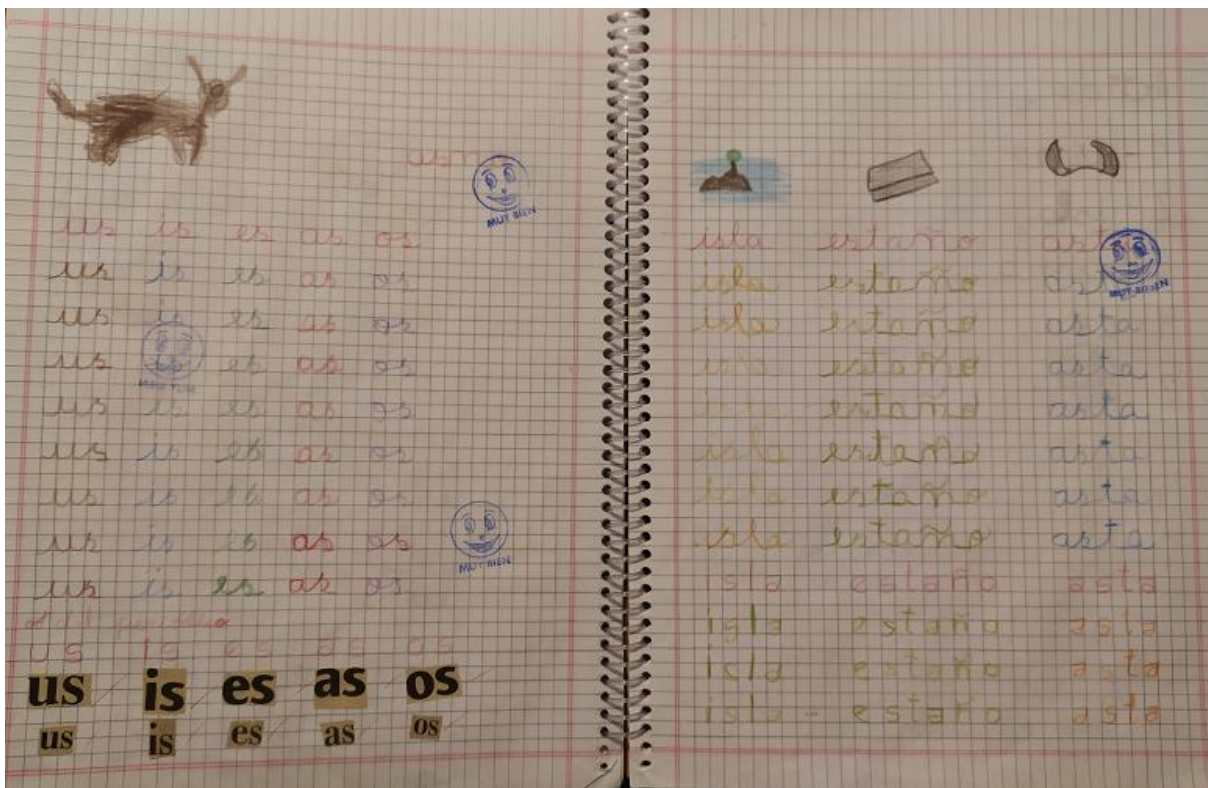 asno
MUY BIEN
us is es as os
us is es as os
us is es as os
us is es as os
MUY BIEN
us is es as os
us is es as os
us is es as os
us is es as os
MUY BIEN
us is es as os
us is es as os
us is es as os
us is es as os
isla estaño asta
MUY BIEN
isla estaño asta
isla estaño asta
isla estaño asta
isla estaño asta
isla estaño asta
isla estaño asta
isla estaño asta
isla estaño asta
isla estaño asta
isla estaño asta
isla - estaño asta